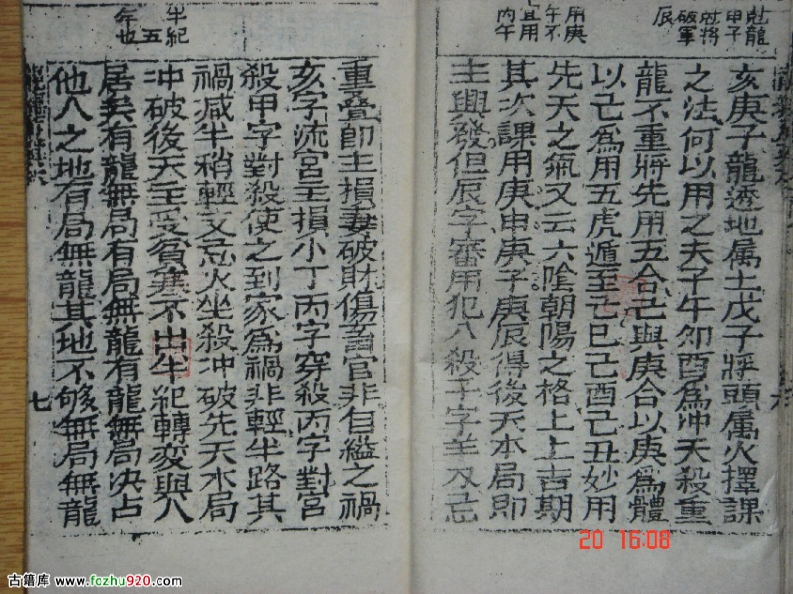 尅龍
甲子
尅將
破軍
辰
用庚
午不
宜用
丙午
亥庚子龍透地属土戊子將頭属火擇課
之法何以用之夫子午卯酉為冲天殺重
龍不重將先用五合己與庚合以庚為體
以己為用五虎遁至己巳己酉己丑妙用
先天之氣又云六陰朝陽之格上上吉期
其次課用庚申庚子庚辰得後天本局即
主興發但辰字審用犯八殺子字羊刃忌
半紀
五
年也
重叠即主損妻破財傷畜官非自縊之禍
亥字流宮主損小丁丙字穿殺丙字對宮
殺甲字對殺使之到家為禍非輕半路其
禍减半稍輕又忌火坐殺冲破先天水局
冲破後天主受貧寒不出半紀轉変與人
居矣有龍無局有局無龍有龍無局决占
他人之地有局無龍其地不够無局無龍
七
六
20 16:08
古籍库 www.fczhu920.com